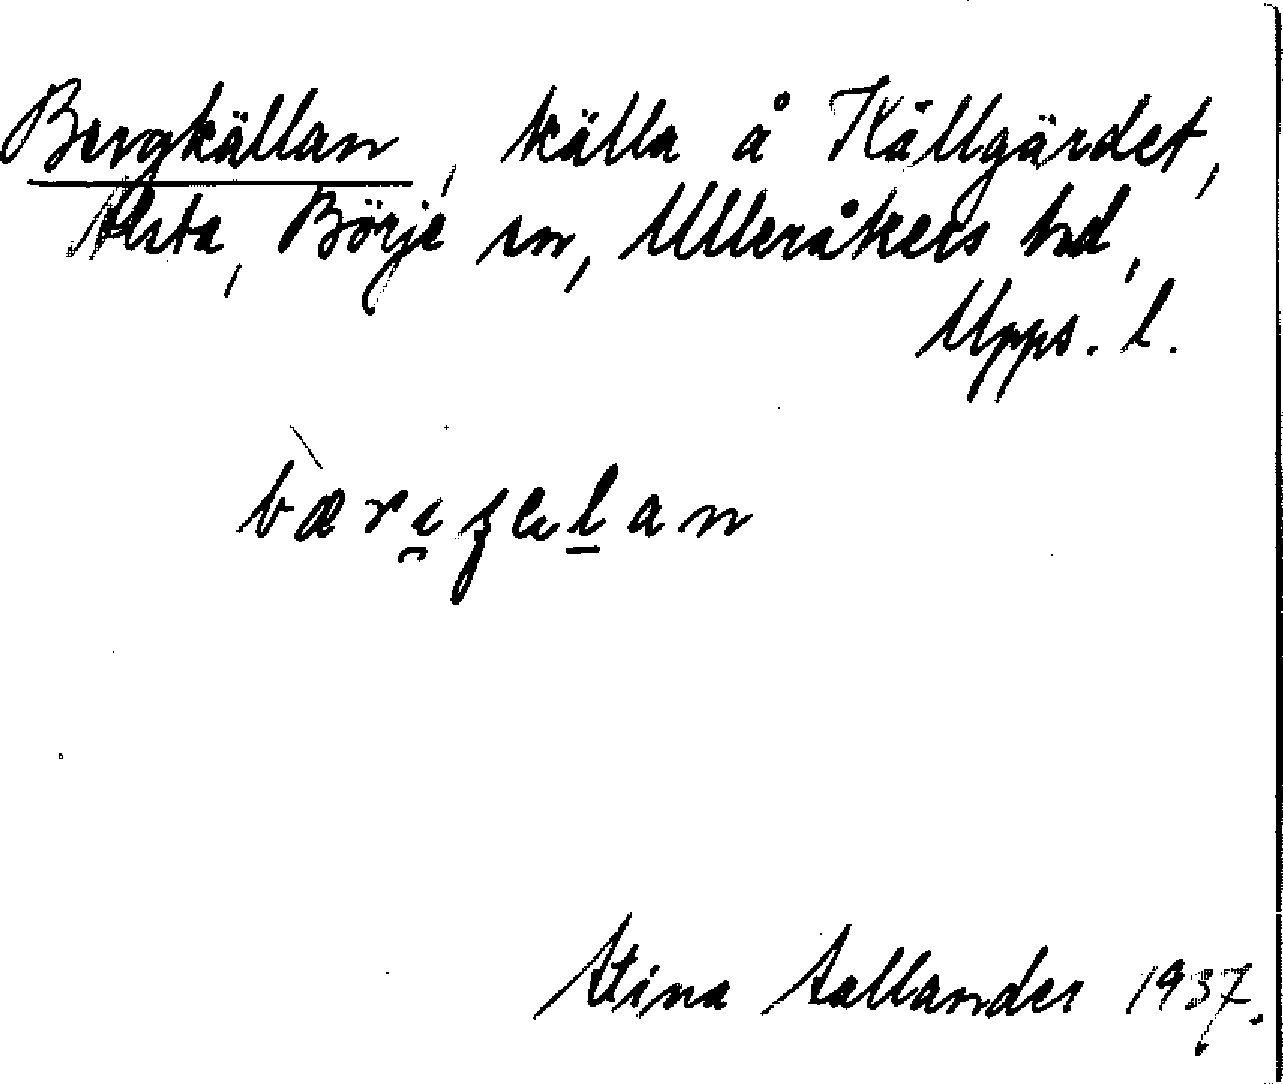 Bergkällan, källa å Källgärdet,
Alsta, Börje sn, Ulleråkers hd,
Upps. l.
Stina Sallander 1937.